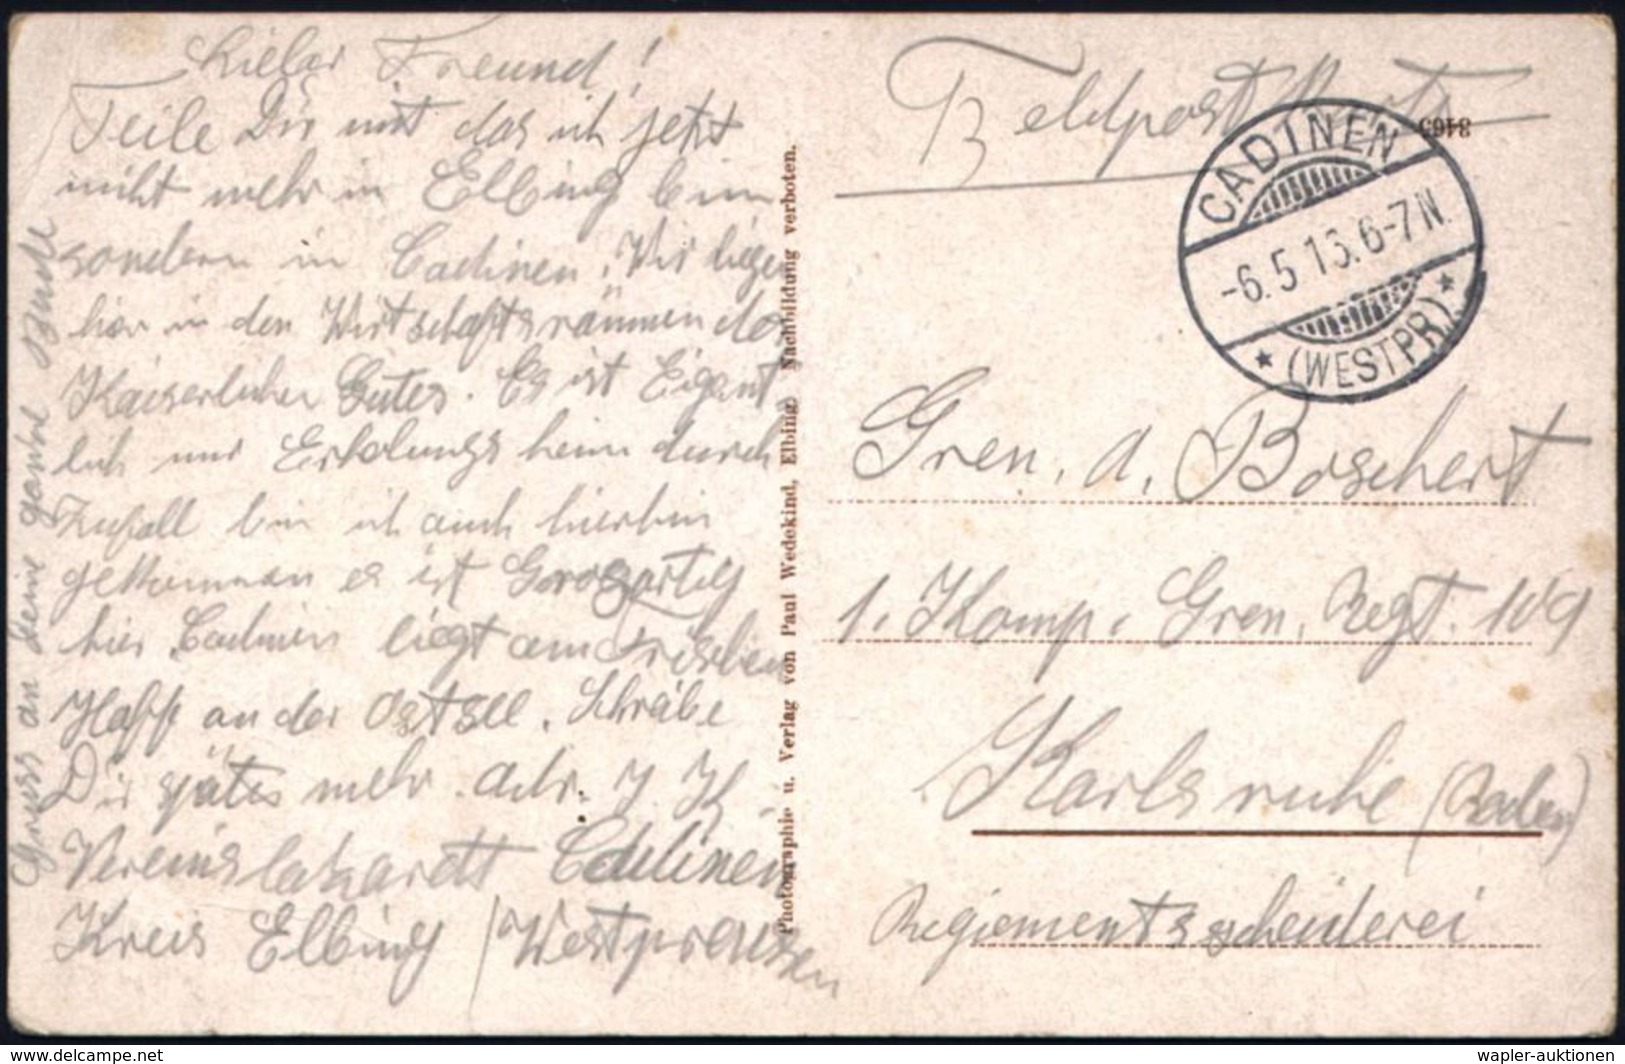 Lieber Freund!
Teile Dir mit das ich jetzt
nicht mehr in Elbing bin
sondern in Cadinen. Wir liegen
hier in den Wirtschaftsräumen des
Kaiserlichen Gutes. Es ist Eigent
lich nur Erholungsheim durch
Zufall bin ich auch hierhin
gekommen es ist Grosartig
hier. Cadinen liegt am Frischen
Haff an der Ostsee. Schreibe
Dir später mehr. Adr.
Vereinslazarett Cadinen
Kreis Elbing / Westpreussen
Gruss an deine ganze Bude
Photographie u. Verlag von Paul Wedekind, Elbing. Nachbildung verboten.
Feldpost Karte
3465
CADINEN
-6.5.16. 6-7 N.
* (WESTPR.) *
Gren. A. Boschert
1. Komp. Gren. Regt. 109
Karlsruhe (Baden)
Regiementsschneiderei
wapler-auktionen
delcampe.net